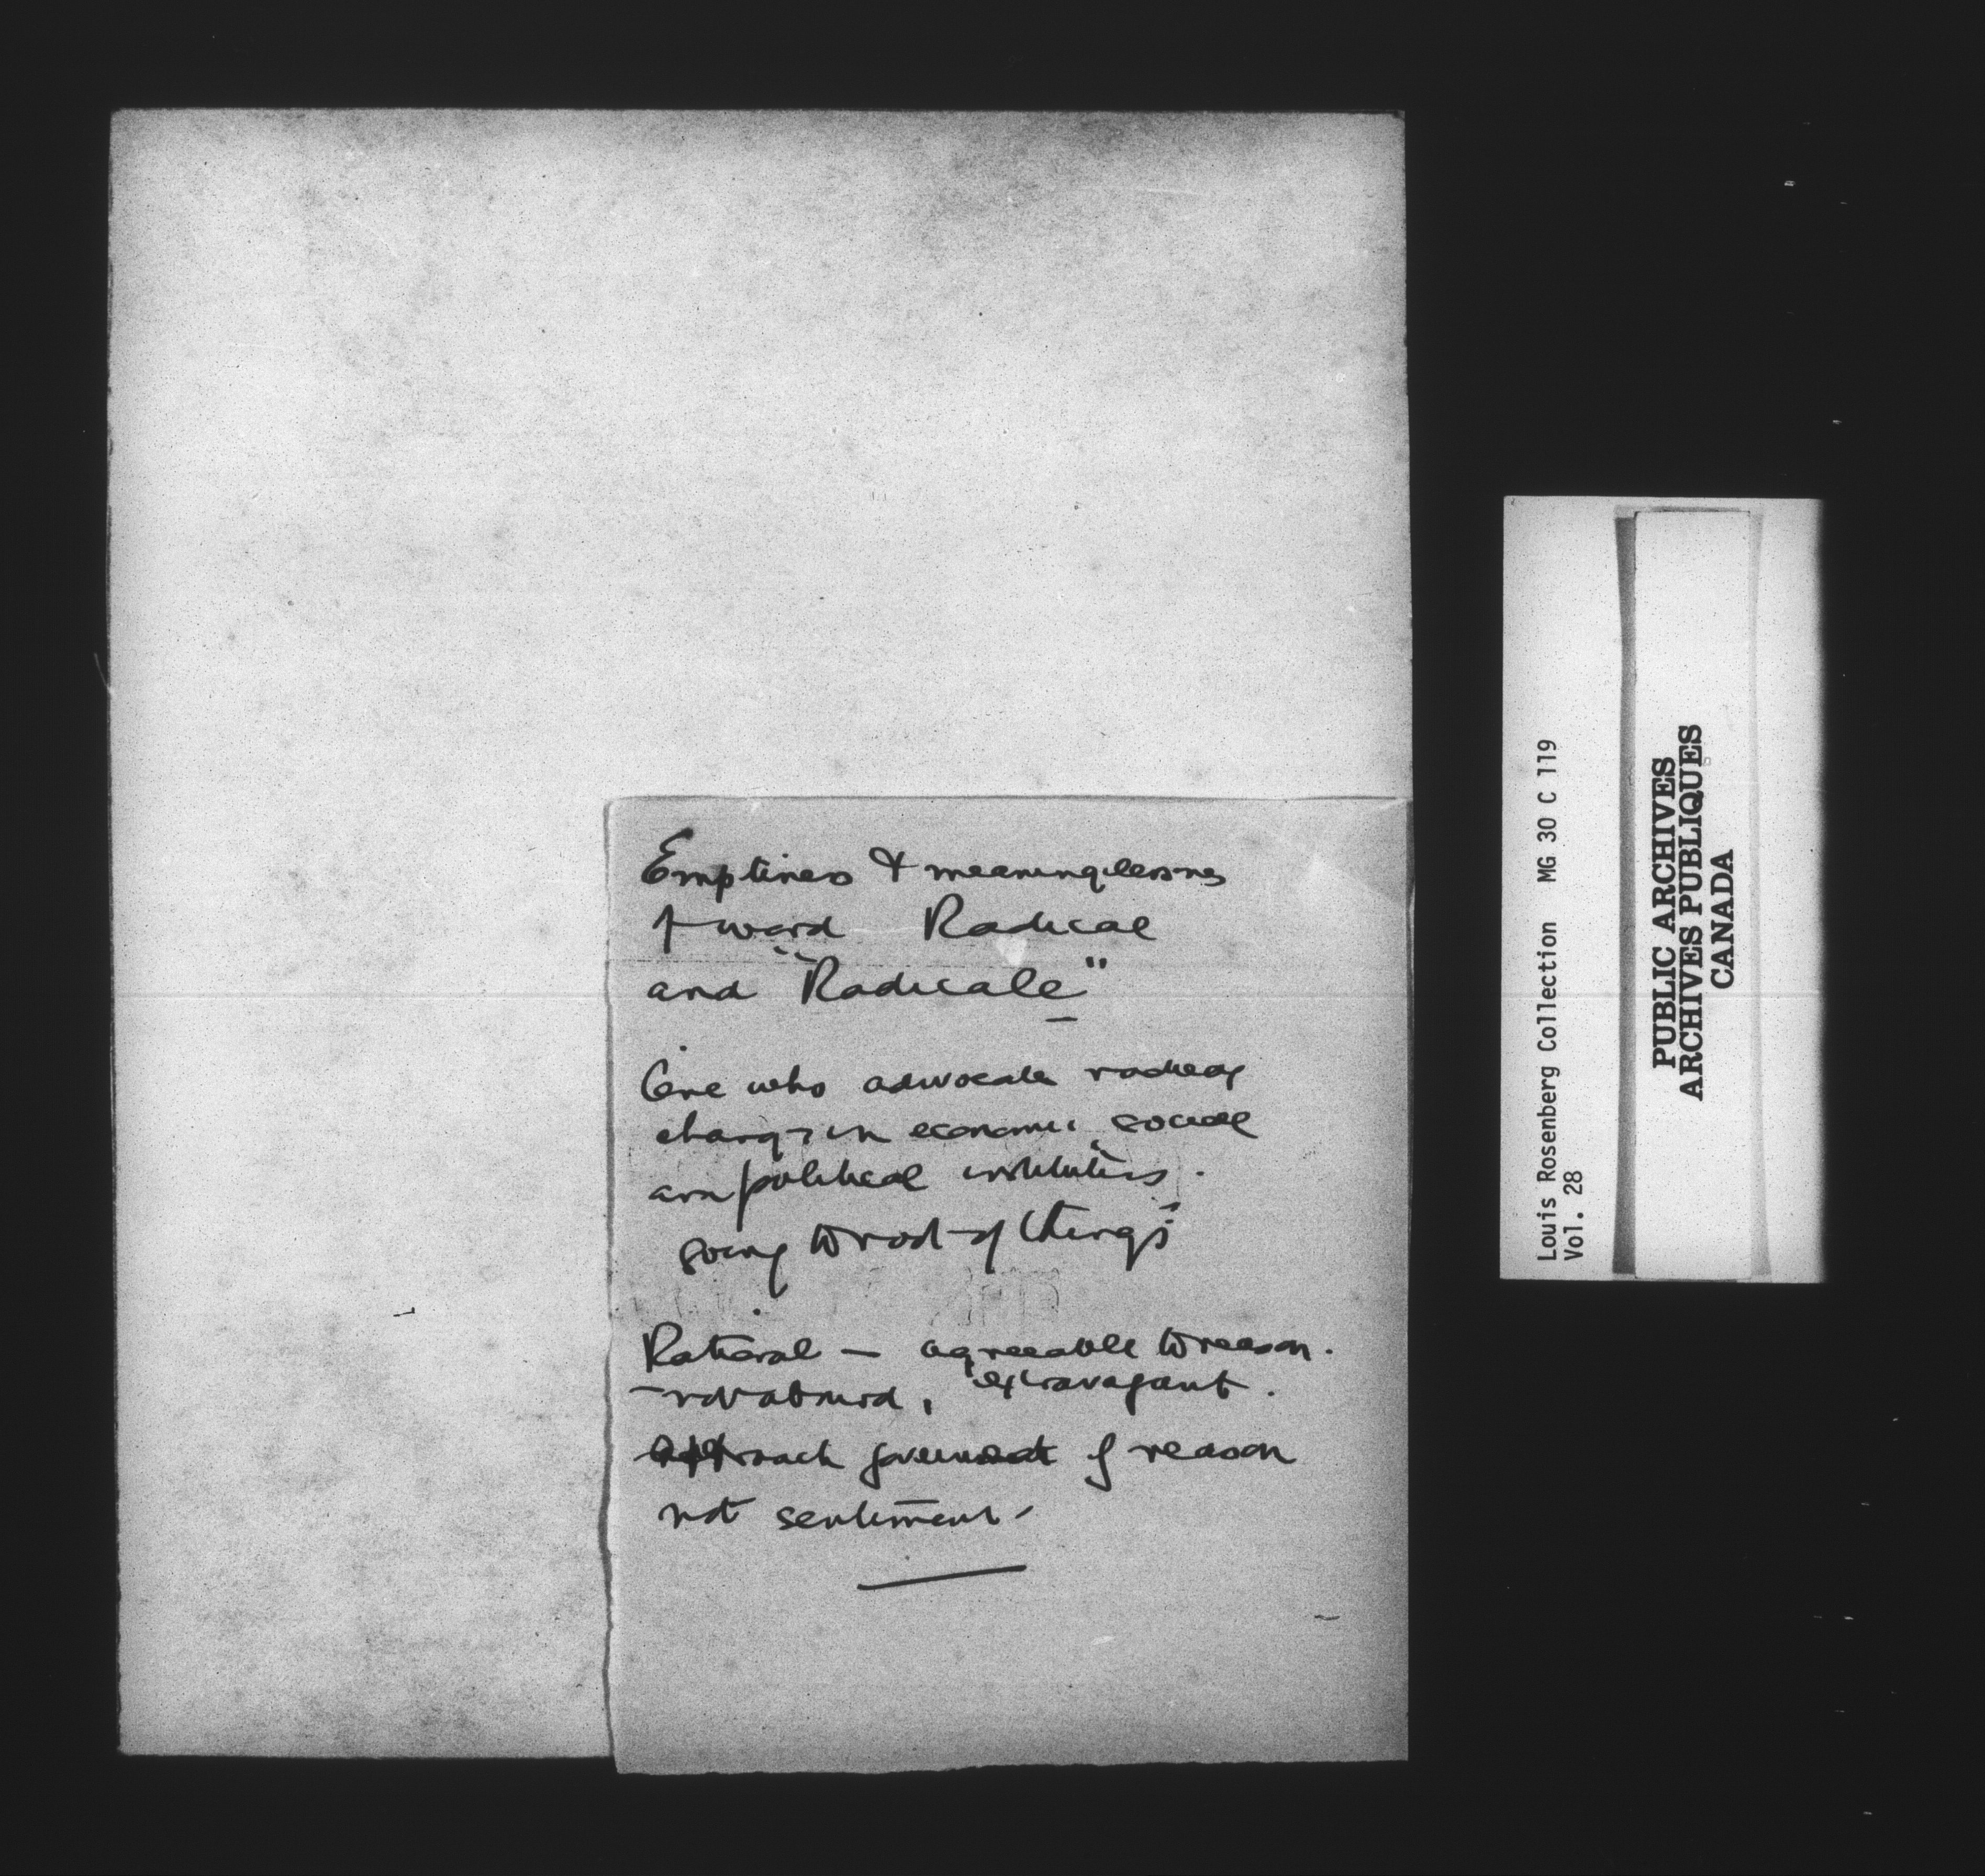 Emptiness & meaninglessness
of word Radical
and "Radicale"
One who advocates radical
changes in economic, social
and political institutions.
going to root of things
Rational — agreeable to reason.
- not absurd, extravagant.
approach government of reason
not sentiment -
Louis Rosenberg Collection MG 30 C 119
Vol. 28
PUBLIC ARCHIVES
ARCHIVES PUBLIQUES
CANADA